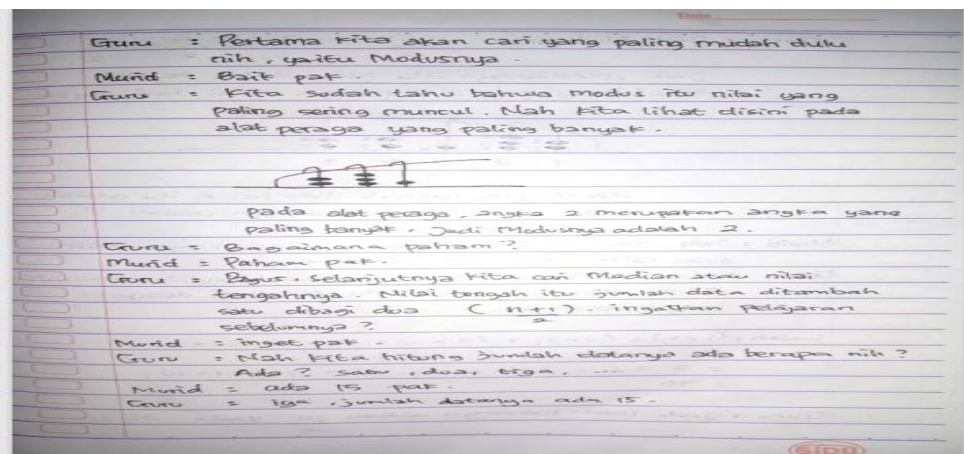 Date :
Guru : Pertama kita akan cari yang paling mudah dulu
nih, yaitu Modusnya.
Murid : Baik pak.
Guru : Kita sudah tahu bahwa modus itu nilai yang
paling sering muncul. Nah kita lihat disini pada
alat peraga yang paling banyak.
pada alat peraga, angka 2 merupakan angka yang
paling banyak. Jadi Modusnya adalah 2.
Guru : Bagaimana paham?
Murid : Paham pak.
Guru : Bagus. Selanjutnya kita cari Median atau nilai
tengahnya. Nilai tengah itu jumlah data ditambah
satu dibagi dua (n+1)/2. ingatkan Pelajaran
sebelumnya?
Murid : inget pak.
Guru : Nah kita hitung jumlah datanya ada berapa nih?
Ada? satu, dua, tiga, ....
Murid : ada 15 pak.
Guru : iya, jumlah datanya ada 15.
SIDU